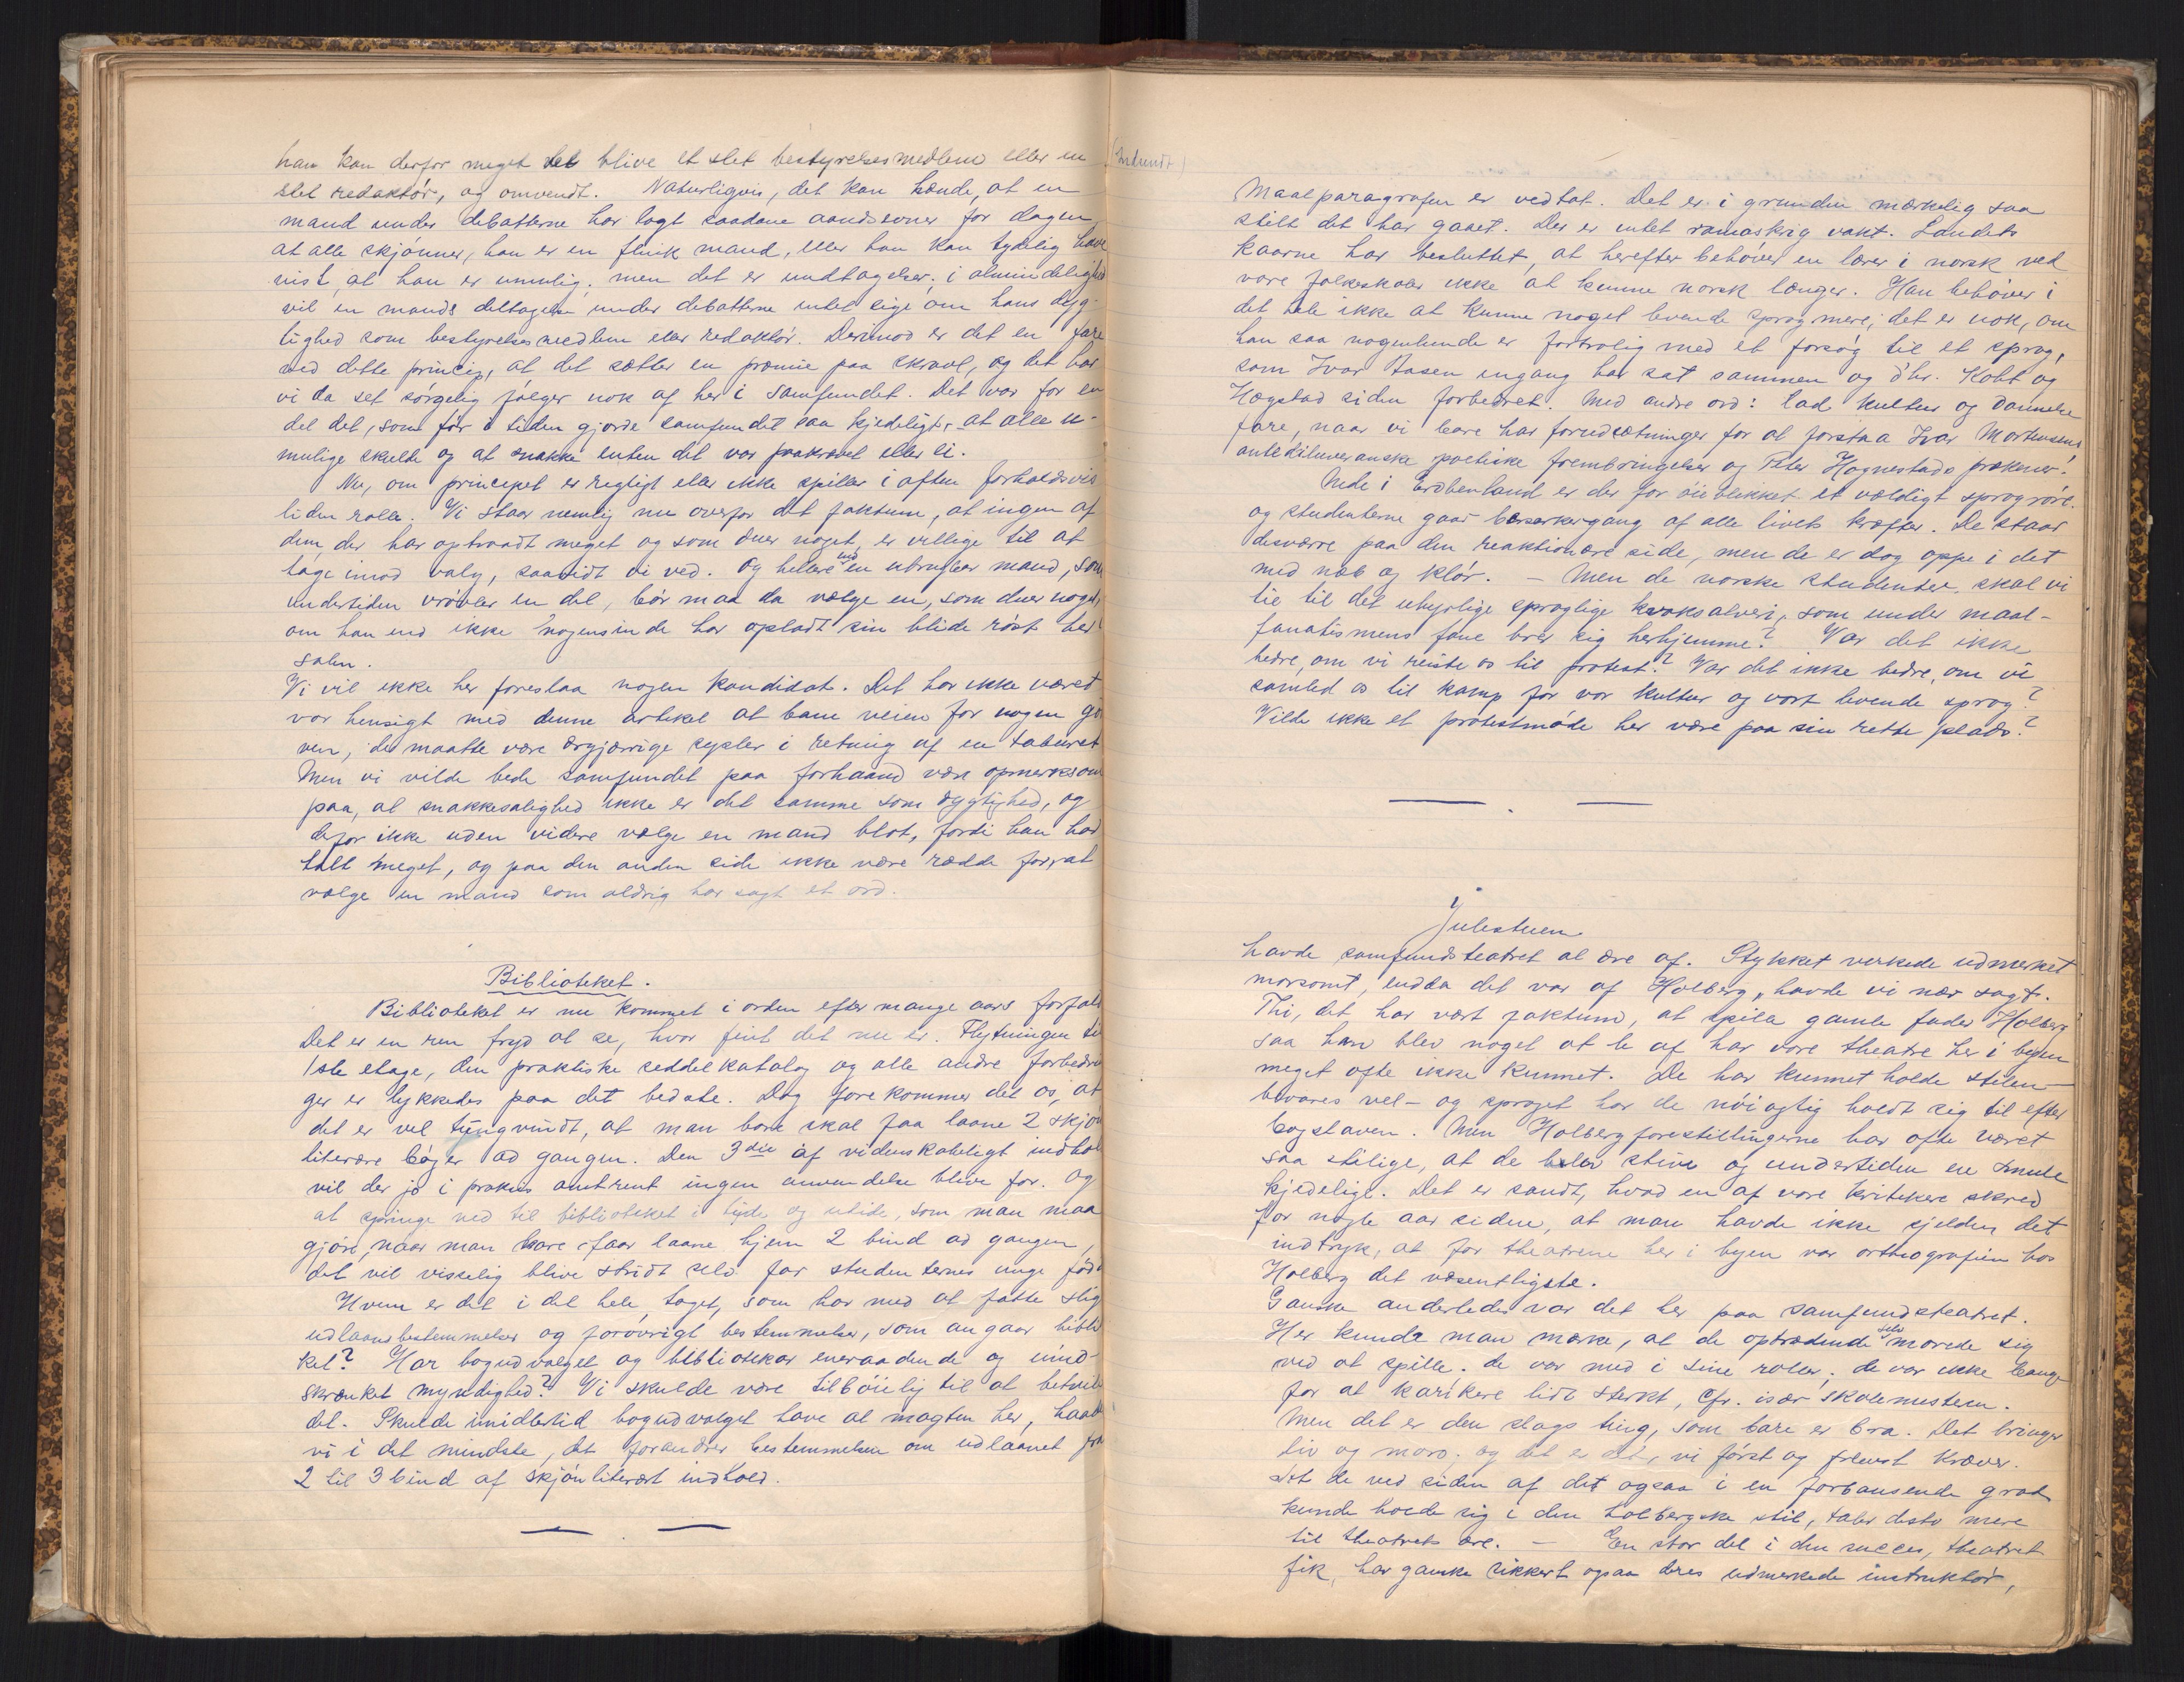 han kan derfor meget let blive et slet bestyrelsesmedlem eller en
slet redaktør, og omvendt. Naturligvis, det kan hænde, at en
mand under debatterne har lagt saadane aandsevner for dagen,
at alle skjønner, han er en flink mand, eller han kan tydelig have
vist, at han er umulig; men det er undtagelser; i almindelighed
vil en mands deltagelse under debatterne intet sige om hans dyg-
tighed som bestyrelsesmedlem eller redaktør. Derimod er det en fare
ved dette princip, at det sætter en præmie paa skravl, og det har
vi da set sørgelig følger nok af her i samfundet. Det var for en
del det, som før i tiden gjorde samfundet saa kjedeligt, at alle u-
mulige skulde op at snakke enten det var paakrævet eller ei.
Nu, om princippet er rigtigt eller ikke spiller i aften forholdsvis
liden rolle. Vi staar nemlig nu overfor det faktum, at ingen af
dem, der har optraadt meget og som duer noget, er villige til at
tage imod valg, saavidt vi ved. Og hellere end en ubrugbar mand, som
undertiden vrøvler en del, bør maa da vælge en, som duer noget,
om han end ikke nogensinde har opladt sin blide røst her i
salen.
Vi vil ikke her foreslaa nogen kandidat. Det har ikke været
vor hensigt med denne artikel at bane veien for nogen
ven, der maatte være ærgjærrige sysler i retning af en taburet
Men vi vilde bede samfundet paa forhaand være opmerksom
paa, at snakkesalighed ikke er det samme som dygtighed, og
derfor ikke uden videre vælge en mand blot, fordi han har
talt meget, og paa den anden side ikke være rædde for, at
vælge en mand som aldrig har sagt et ord.
Biblioteket.
Biblioteket er nu kommet i orden efter mange aars forfald
Det er en ren fryd at se, hvor fint det nu er. Flytningen til
1ste etage, den praktiske seddelkatalog og alle andre forbedrin
ger er lykkedes paa det bedste. Dog forekommer det os, at
det er vel tungvindt, at man bare skal faa laane 2 skjøn
literære bøger ad gangen. Den 3die af videnskabeligt indhold
vil der jo i praksis omtrent ingen anvendelse blive for. Og
at springe ned til biblioteket i tide og utide, som man maa
gjøre, naar man bare faar laane hjem 2 bind ad gangen,
det vil visselig blive stridt selv for studenternes unge fødd
Hvem er det i det hele taget, som har med at fatte slig
udlaansbestemmelser og forøvrigt bestemmelser, som angaar biblio
ket? Har bogudvalget og bibliotekar eneraadende og uind-
skrænket myndighed? Vi skulde være tilbøielig til at betvile
det. Skulde imidlertid bogudvalget have al magten her, haaber
vi i det mindste, det forandrer bestemmelsen om udlaanet fra
2 til 3 bind af skjønliterært indhold.
Maalparagrafen er vedtat. Det er i grunden mærkelig saa
stilt det har gaaet. Der er intet ramaskrig vakt. Landets
kaarne har besluttet, at herefter behøver en lærer i norsk ved
vore folkeskoler ikke at kunne norsk længer. Han behøver i
det hele ikke at kunne noget levende sprog mere; det er nok, om
han saa nogenlunde er fortrolig med et forsøg til et sprog,
som Ivar Aasen engang har sat sammen og d'hr. Koht og
Hægstad siden forbedret. Med andre ord: lad kultur og dannelse
fare, naar vi bare har forudsætninger for at forstaa Ivar Mortensens
antediluveranske poetiske frembringelser og Peter Hognestads prækener!
Nede i Grækenland er der for øieblikket et vældigt sprogrøre.
og studenterne gaar berserkergang af alle livets kræfter. De staar
desværre paa den reaktionære side, men de er dog oppe i det
med næb og klør. — Men de norske studenter, skal vi
tie til det uhyrlige sproglige kvaksalveri, som under maal-
fanatismens fane brer sig herhjemme? Var det ikke
bedre, om vi reiste os til protest? Var det ikke bedre, om vi
samled os til kamp for vor kultur og vort levende sprog?
Vilde ikke et protestmøde her være paa sin rette plads?
Julestuen
havde samfundsteatret al ære af. Stykket verkede udmerket
morsomt, endda det var af Holberg, havde vi nær sagt.
Thi, det har vært faktum, at spille gamle fader Holberg
saa han blev noget at le af har vore theatre her i byen
meget ofte ikke kunnet. De har kunnet holde stilen —
bevares vel — og sproget har de nøiagtig holdt sig til efter
bogstaven. Men Holbergforestillingerne har ofte været
saa stilige, at de blev stive og undertiden en smule
kjedelige. Det er sandt, hvad en af vore kritikere skrev
for nogle aar siden, at man havde ikke sjelden det
indtryk, at for theatrene her i byen var orthografien hos
Holberg det væsentligste.
Ganske anderledes var det her paa samfundsteatret.
Her kunde man mærke, at de optrædende selv morede sig
ved at spille. de var med i sine roller; de var ikke bange
for at karikere lidt sterkt, cfr. især skolemesteren.
Men det er den slags ting, som bare er bra. Det bringer
liv og moro; og det er det, vi først og fremst kræver.
At de ved siden af det ogsaa i en forbausende grad
kunde holde sig i den holbergske stil, taler desto mere
til theatrets ære. — En stor del i den succes, theatret
fik, har ganske sikkert ogsaa deres udmerkede instruktør,